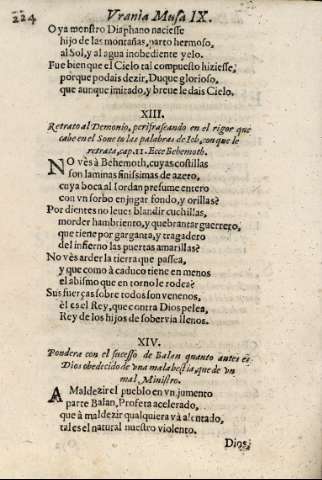 224
Vrania Musa IX.
O ya monstro Diaphano naciesse
hijo de las montañas, parto hermoso,
al Sol, y al agua inobediente yelo.
Fue bien que el Cielo tal compuesto hiziesse,
porque podais dezir, Duque glorioso,
que aunque imitado, y breue le dais Cielo.
XIII.
Retrato al Demonio, perifraseando en el rigor que
cabe en el Soneto las palabras de Iob, con que le
retrata, cap. 41. Ecce Behemoth.
NO vès à Behemoth, cuyas costillas
son laminas finissimas de azero,
cuya boca al Iordan presume entero
con vn sorbo enjugar fondo, y orillas?
Por dientes no leues blandir cuchillas,
morder hambriento, y quebrantar guerrero,
que tiene por garganta, y tragadero
del infierno las puertas amarillas?
No vès arder la tierra que passea,
y que como à caduco tiene en menos
el abismo que en torno le rodea?
Sus fuerças sobre todos son venenos,
èl es el Rey, que contra Dios pelea,
Rey de los hijos de sobervia llenos.
XIV.
Pondera con el sucesso de Balan quanto antes es
Dios obedecido de vna mala bestia, que de vn
mal Ministro.
A Maldezir el pueblo en vn jumento
parte Balan, Profeta acelerado,
que à maldezir qualquiera và alentado,
tal es el natural nuestro violento.
Dios,